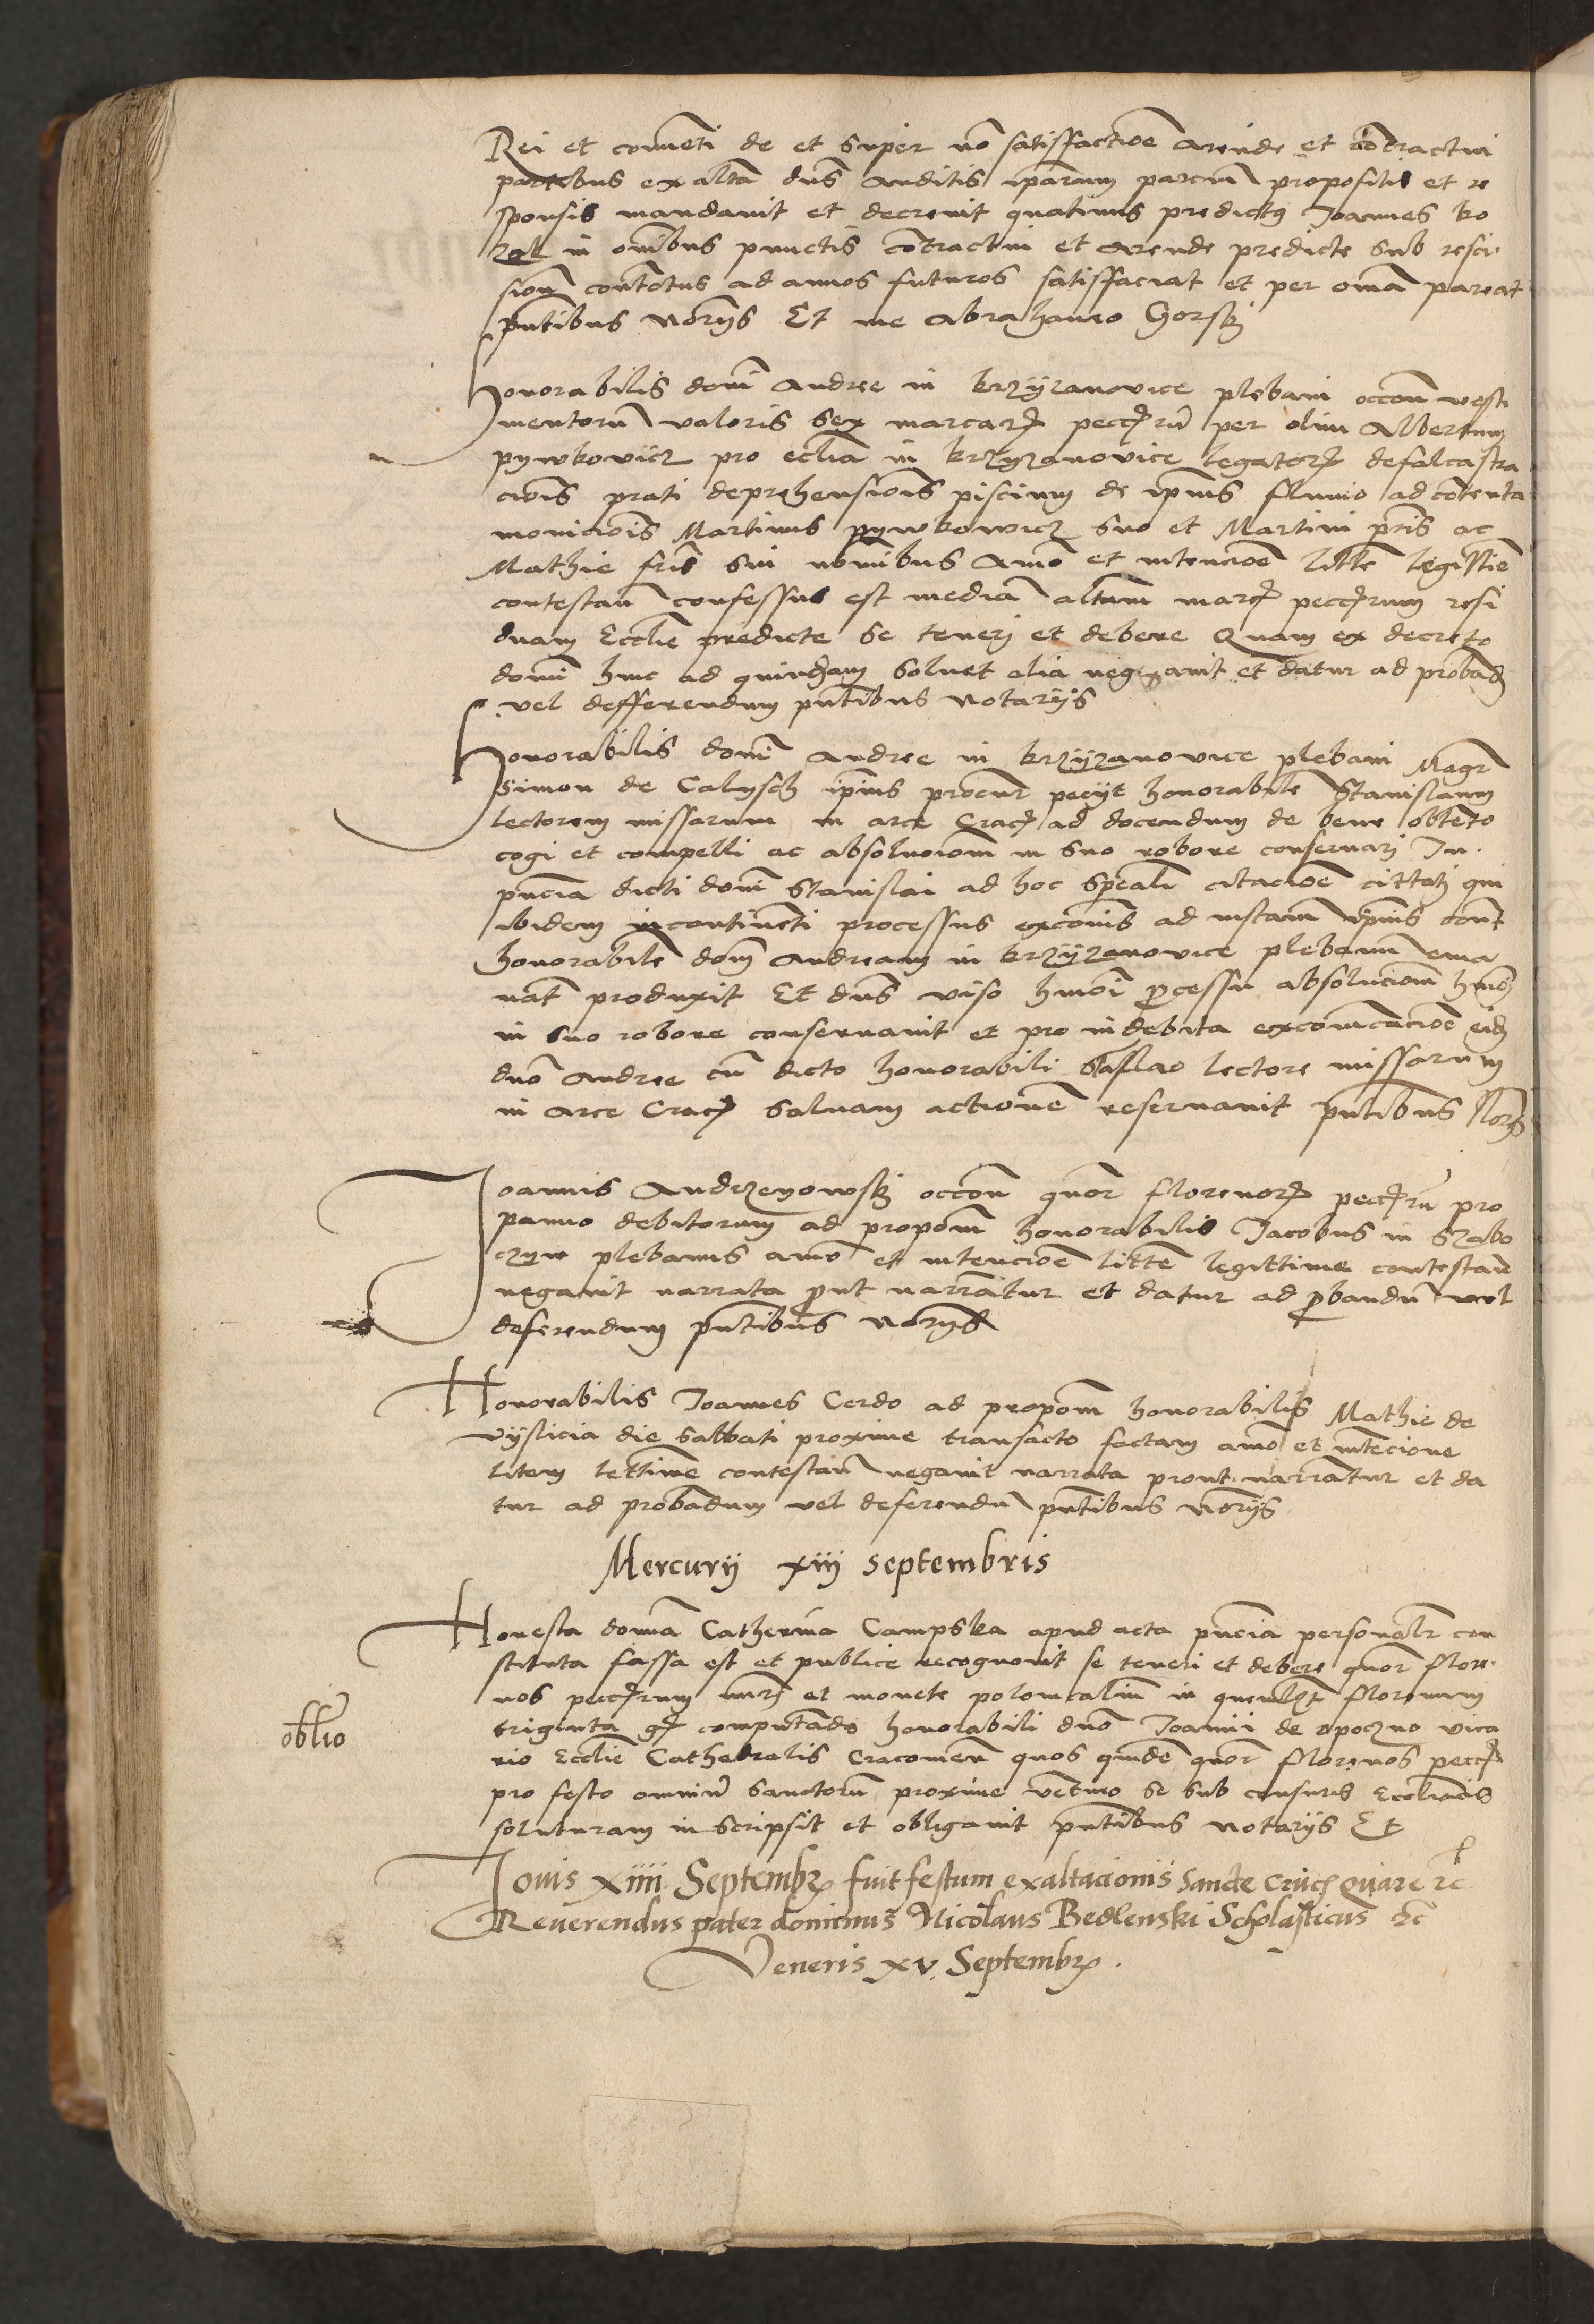 Rei et conventi de et super nō satisfactiōe arende et cōtractui
partibus ex altā dns auditis ipārum parciū propositis et re
sponsis mandavit et decrevit quatinus predictꝯ Joannes ko
zal in oñibus punctis cōtractui et arende predicte sub resci
sionē contētus ad annos futuros satisfaciat et per oma pareat
pñtibus notrijs Et me Abrahamo Gorskj
Honorabilis domi Andree in krzÿzanovice plebani occoñ vesti
mentorū valoris sex marcarꝝ pecc rū per olim Albertum
pywkovicz pro ecclia in krzÿzanovice legatorꝝ defalcastra
ciōis prati deprehensiōis piscium de ipius fluvio ad cōtenta
moniciōis Martinus pywkowicz suo et Martini pris ac
Mathie fris sui noibus aiō et intenciōe littē legittiē
contestanō confessus est mediā altam marc peccrum resi
duam Ecclie predicte se tenerj et debere Quam ex decreto
domi hinc ad quindenam solvet alia negavit et datur ad probadᷤ
vel defferendum pñtibus notarijs
Honorabilis domi Andree in krzÿzanovice plebani Magr
Simon de Calysch ipius procur pecijt honorabilē Stanislaum
lectorem missarum in arce Cracꝫ ad docendum de bene obtēto
cogi et compelli ac absolucionē in suo robore conservarj In
pñcia dicti domi Stanislai ad hoc specali citaciōe cittatj qui
ibidem incontinēti processus excōis ad instam ipius cont
honorabilē dom Andream in krzÿzanovice plebanū ema
nat produxit Et dns viso hmōi pcessu absolucionē hmōi
in suo robore conservavit et pro indebita excoīcaciōe eidē
dno Andree cū dicto honorabili Stāslao lectore missarum
in arce Cracꝫ salvam actionē reservavit pñtibus Norijs
Joannis Andrzeyowskj occoñ quor florenorꝝ peccrū pro
panno debitorum ad propōem honorabilis Jacobus in Szabo
czyn plebanus aiō et intenciōe littē legittime contestanō
negavit narrata put narrātur et datur ad pbandū vel
deferendum pñtibus norijs
Honorabilis Joannes Cerdo ad propōem honorabilis Mathie de
vyslicia die sabbati proxime transacto factam aiō et intēcione
litem lettimē contestanō negavit narrata prout narrātur et da
tur ad probādum vel deferendū pñtibus norijs
Mercurij xiij septembris
Honesta domā Catherina Campska apud acta pñcia personalr con
stituta fassa est et publice recognovit se tenerj et debere quor flore
nos peccrum numj et monete polonicalium in quemlꝫt florenum
triginta gꝫ computādo honorabili dno Joanni de opoczno vica
rio Ecclie Cathedralis Cracovienꝫ quos quidē quor florenos pecc
pro festo omniū sanctorū proxime vēturo se sub censuris Eccliacis
soluturam inscripsit et obligavit pñtibus notarijs Et
oblio
Jovis xiiii Septembꝝ fuit festum exaltacionis Sancte Crucꝭ quare rc
Reverendus pater dominus Nicolaus Bedlenski Scholasticus rc
Veneris xv. Septembꝝ.